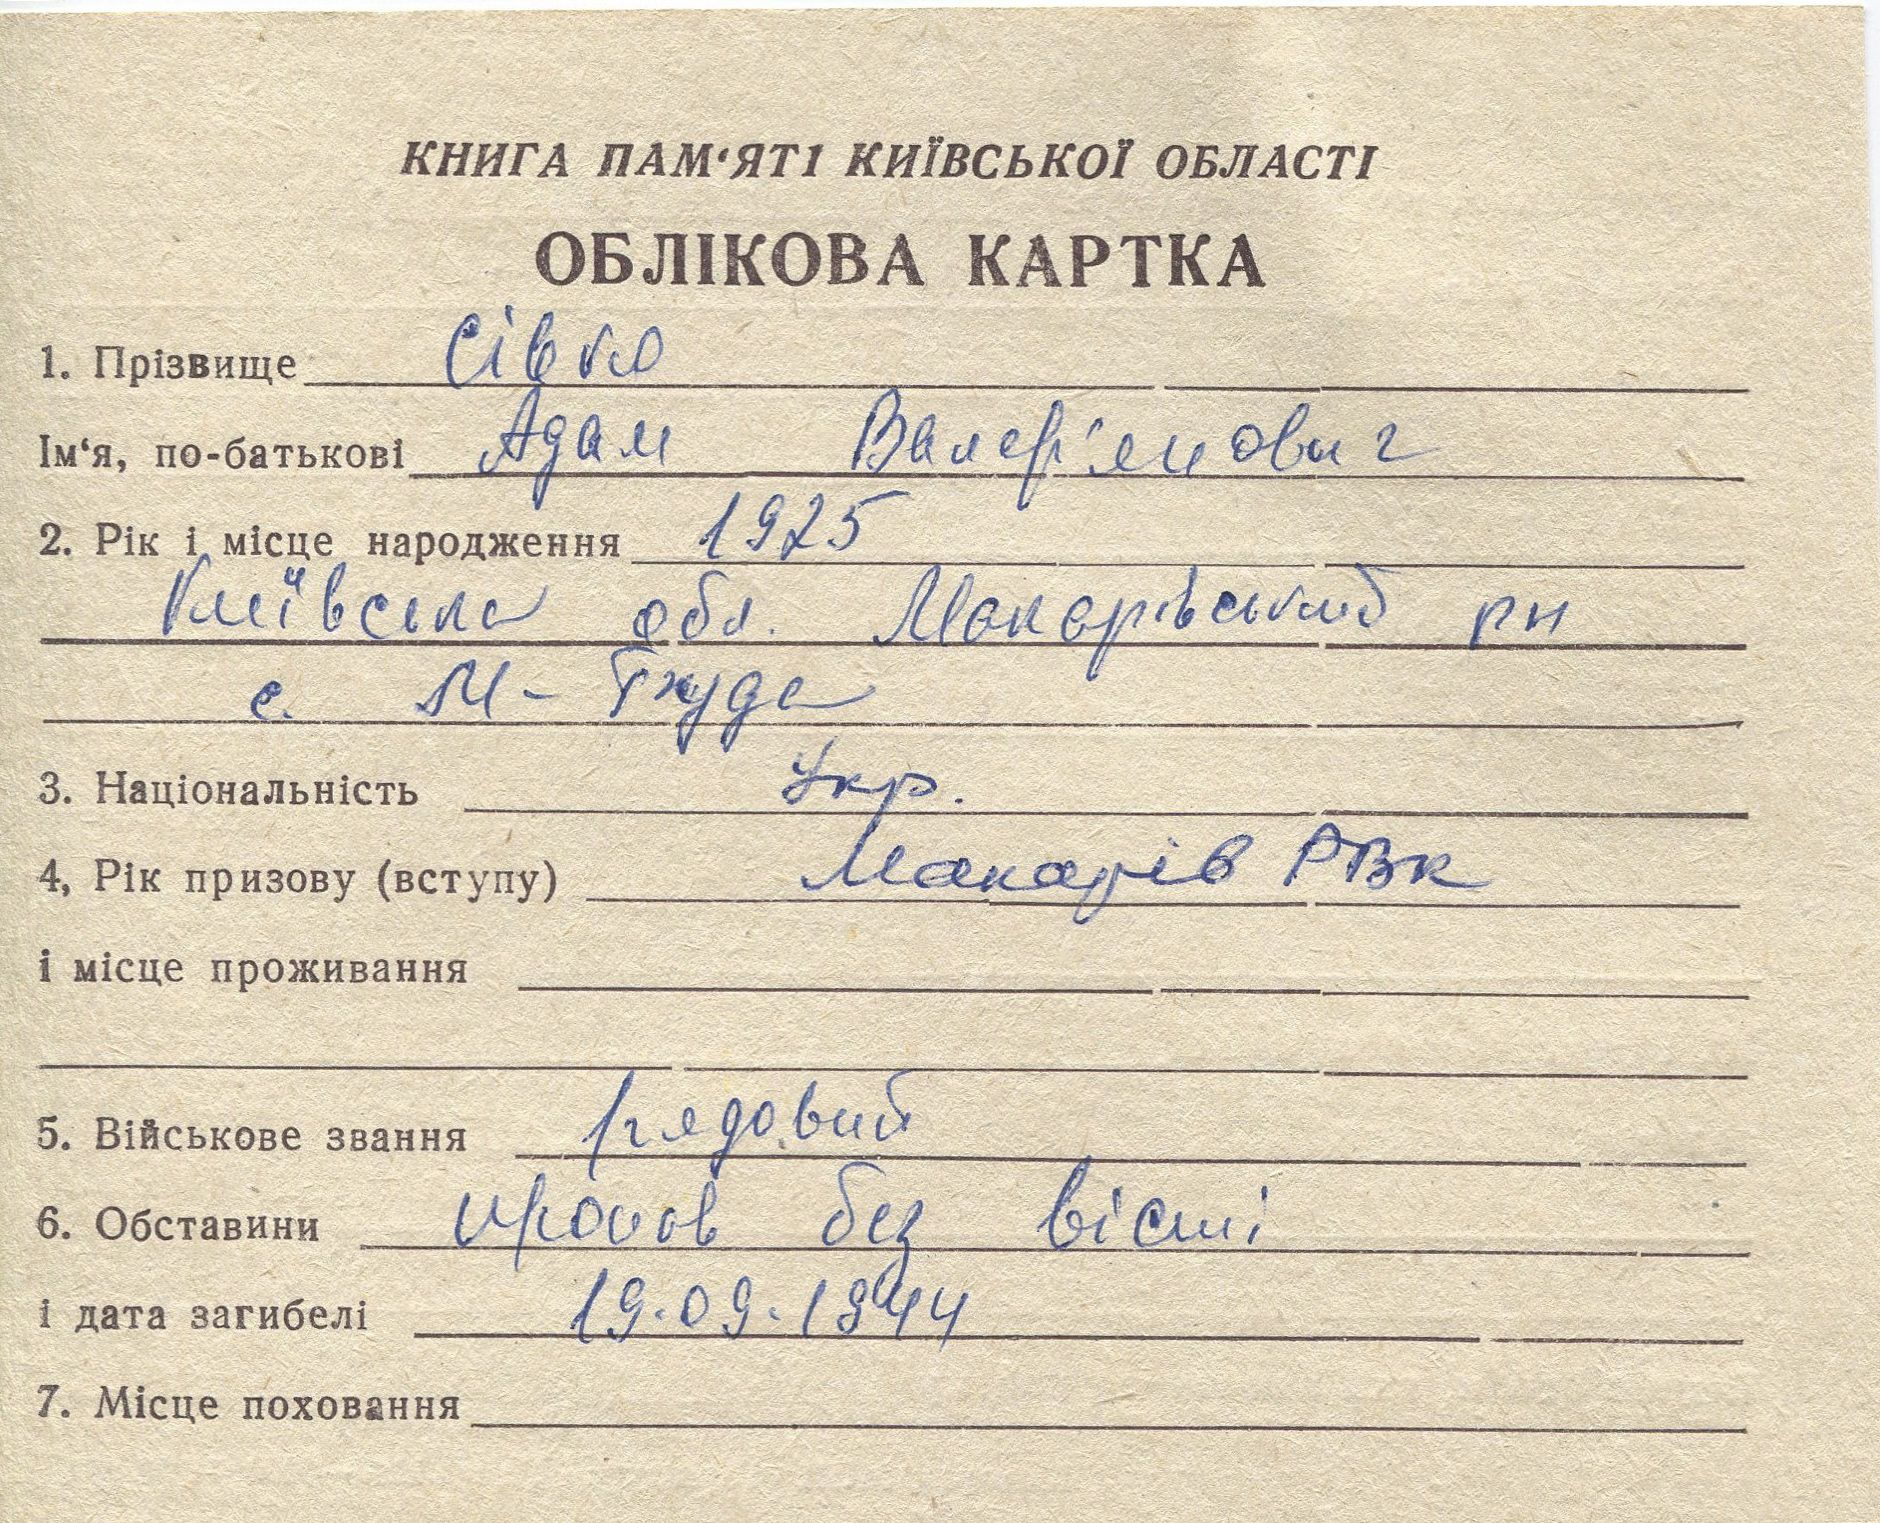 КНИГА ПАМ‘ЯТІ КИЇВСЬКОЇ ОБЛАСТІ
ОБЛІКОВА КАРТКА
1. Прізвище Сівко
Ім‘я, по-батькові Адам Валер'янович
2. Рік і місце народження 1925
Київська обл. Макарівський рн
с. М-
3. Національність Укр.
4, Рік призову (вступу) Макарів РВК
і місце проживання
5. Військове звання рядовий
6. Обставини пропав без вісті
і дата загибелі 19.09.1944
7. Місце поховання